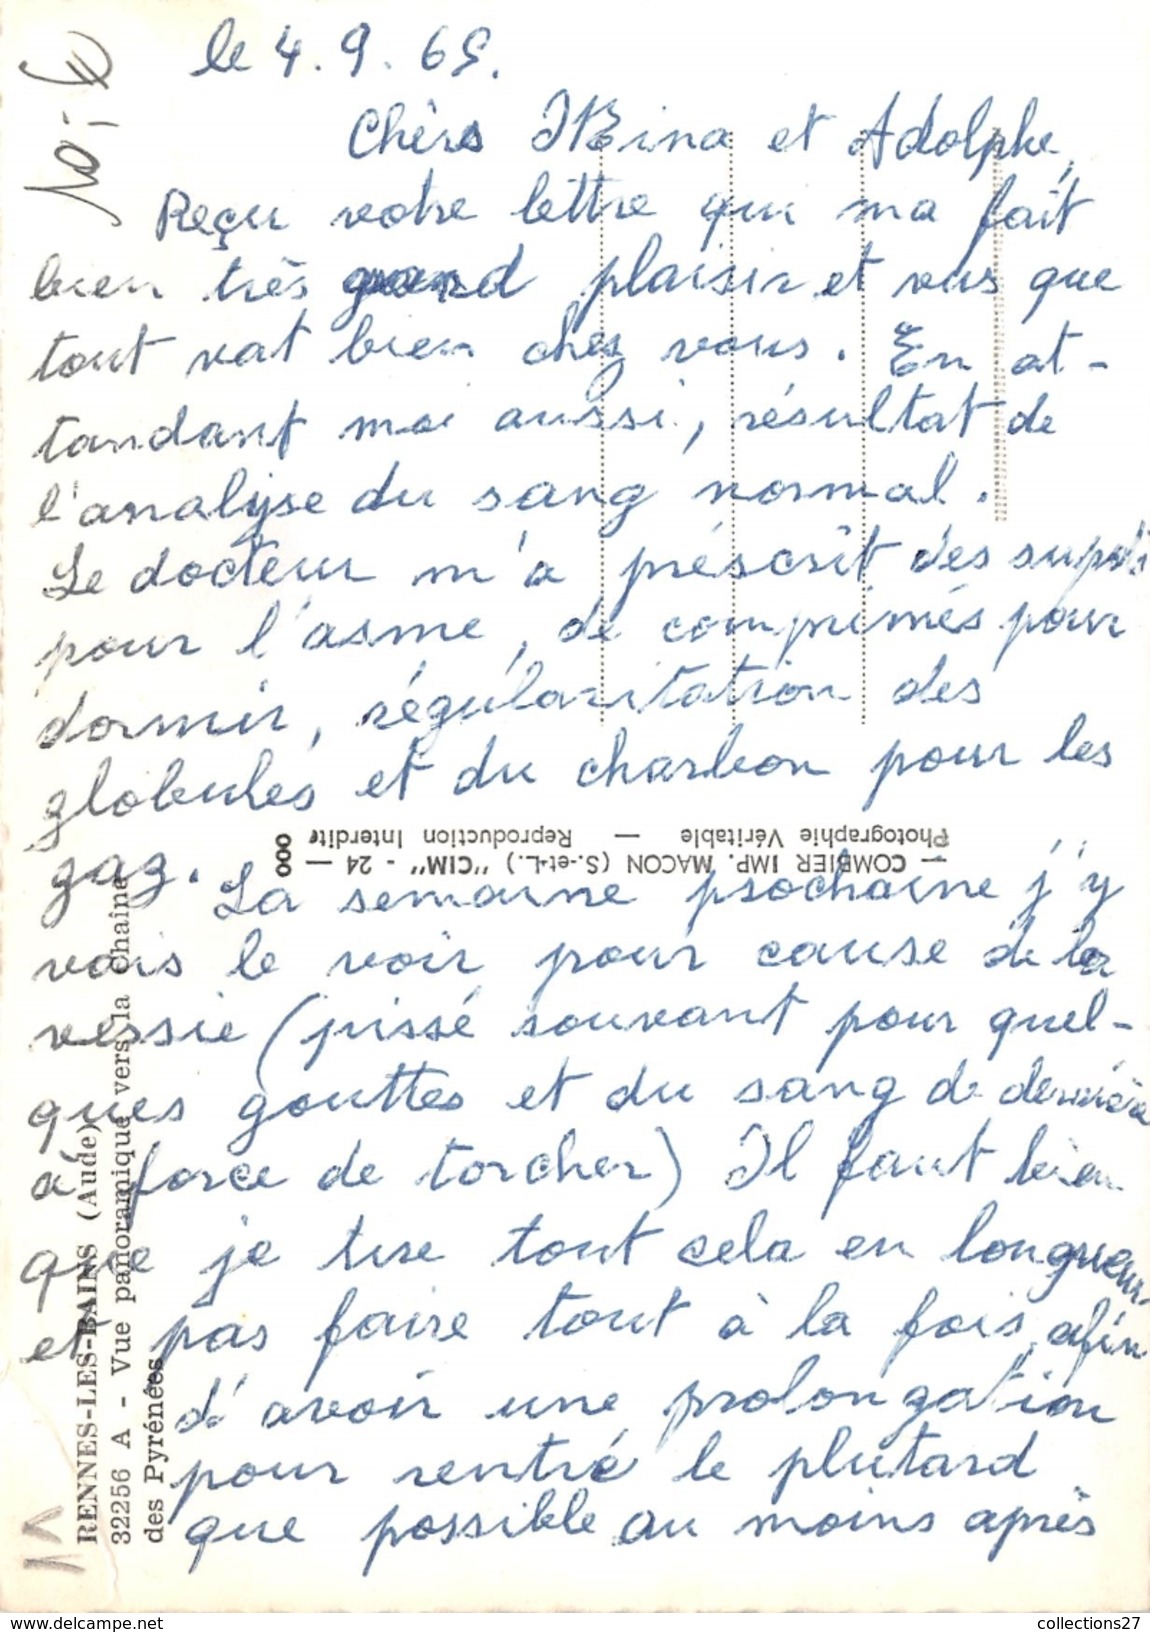 le 4.9.69.
Chèrs et Adolphe,
Reçu votre lettre qui ma fait
bien très grand plaisir et vus que
tout vat bien chez vous. En at-
tandant moi aussi, résultat de
l'analyse du sang normal.
Le docteur m'a préscrit des
pour l'asme, de comprimés pour
dormir, régularitation des
globulés et du charbon pour les
gaz.
La semaine prochaine j'y
vais le voir pour cause de la
vessie (pissé souvant pour quel-
ques gouttes et du sang de
à force de torcher) Il faut bien
que je tire tout cela en longueur
et pas faire tout à la fois, afin
d'avoir une prolongation
pour rentré le plutard
que possible au moins après
RENNES-LES-BAINS (Aude)
32256 A - Vue panoramique vers la chaine
des Pyrénées
COMBIER IMP. MACON (S.-et-L.) "CIM" - 24 — 000
Photographie Véritable — Reproduction Interdite
collections27
delcampe.net